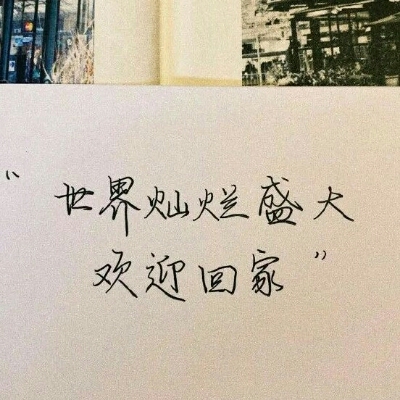 “世界灿烂盛大
欢迎回家”